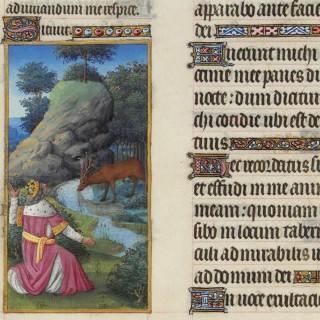 ad iuvandum me respice.
Sicut
apparabo ante facie
dei
Fuerunt michi
crime mee panes di
nocte: dum dicitur
chi cotidie ubi est de
tuus
Hec recordatus s
et effudi in me ani
meam: quoniam
sibo in locum taber
culi admirabilis us
ad domum dei
In voce exultacio